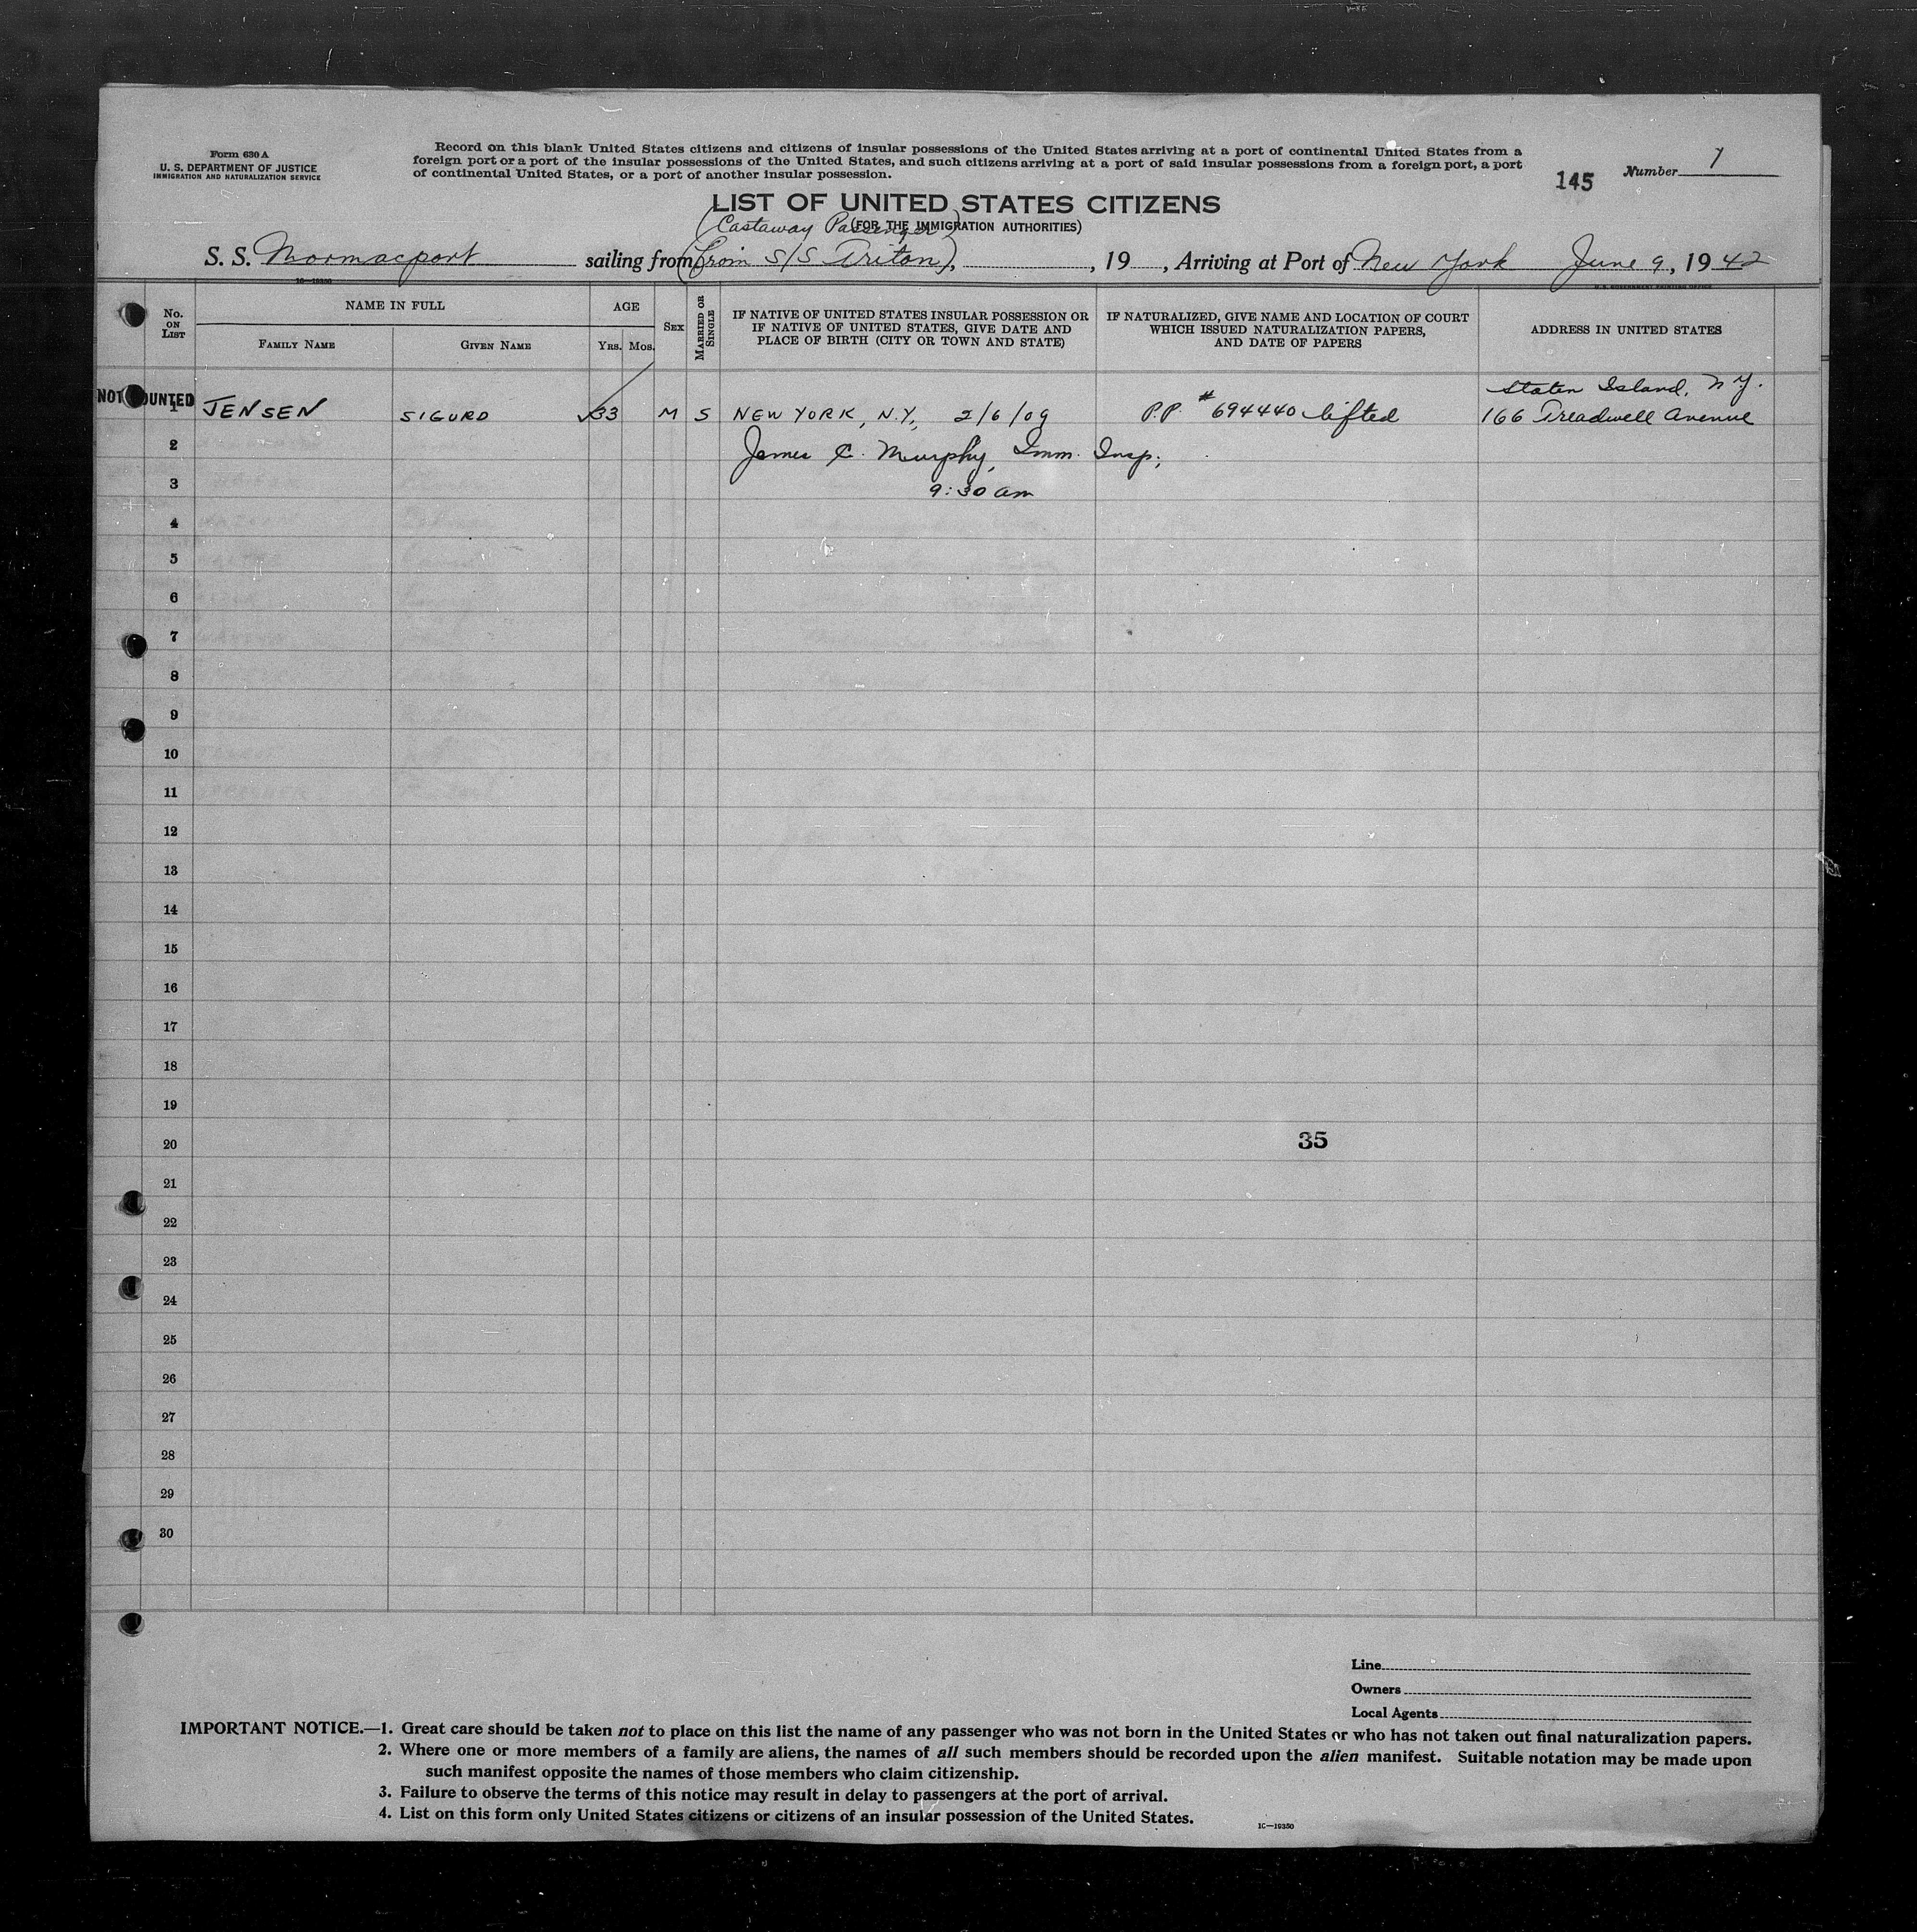 Form 630 A
U. S. DEPARTMENT OF JUSTICE
IMMIGRATION AND NATURALIZATION SERVICE
Record on this blank United States citizens and citizens of insular possessions of the United States arriving at a port of continental United States from a
foreign port or a port of the insular possessions of the United States, and such citizens arriving at a port of said insular possessions from a foreign port, a port
of continental United States, or a port of another insular possession.
145
Number 1
LIST OF UNITED STATES CITIZENS
(FOR THE IMMIGRATION AUTHORITIES)
(Castaway Passenger)
S. S. Mormacport sailing from (from S/S Triton), , 19 , Arriving at Port of New York June 9, 1942
16—19350
U. S. GOVERNMENT PRINTING OFFICE
No. ON LIST
NAME IN FULL
FAMILY NAME
GIVEN NAME
AGE
YRS. MOS.
SEX
MARRIED OR SINGLE
IF NATIVE OF UNITED STATES INSULAR POSSESSION OR
IF NATIVE OF UNITED STATES, GIVE DATE AND
PLACE OF BIRTH (CITY OR TOWN AND STATE)
IF NATURALIZED, GIVE NAME AND LOCATION OF COURT
WHICH ISSUED NATURALIZATION PAPERS,
AND DATE OF PAPERS
ADDRESS IN UNITED STATES
Staten Island, N.Y.
NOT OUNTED
1 JENSEN SIGURD ✓33 M S NEW YORK, N.Y., 2/6/09 P.P. #694440 lifted 166 Treadwell Avenue
2 James C. Murphy, Imm. Insp;
3 9:30 am
4
5
6
7
8
9
10
11
12
13
14
15
16
17
18
19
20 35
21
22
23
24
25
26
27
28
29
30
Line
Owners
Local Agents
IMPORTANT NOTICE.—1. Great care should be taken not to place on this list the name of any passenger who was not born in the United States or who has not taken out final naturalization papers.
2. Where one or more members of a family are aliens, the names of all such members should be recorded upon the alien manifest. Suitable notation may be made upon
such manifest opposite the names of those members who claim citizenship.
3. Failure to observe the terms of this notice may result in delay to passengers at the port of arrival.
4. List on this form only United States citizens or citizens of an insular possession of the United States.
16—19350